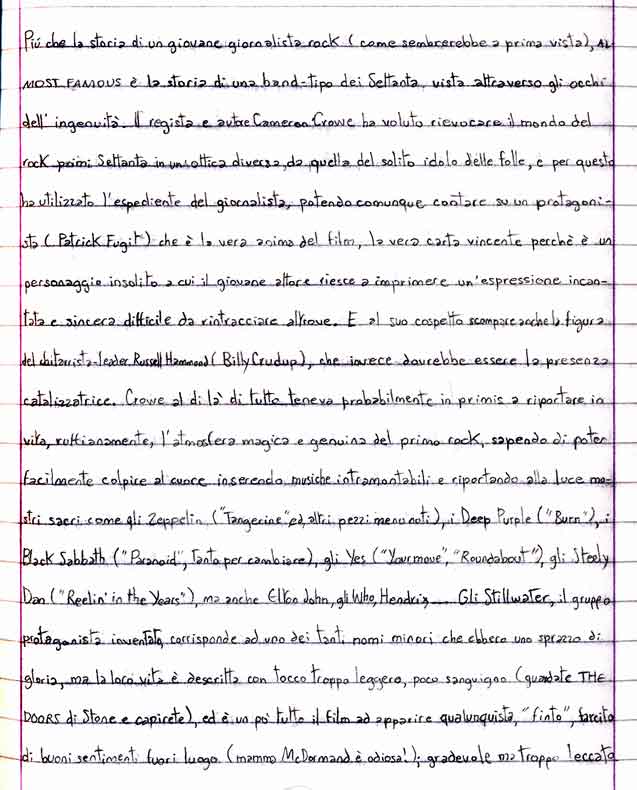 Più che la storia di un giovane giornalista rock (come sembrerebbe a prima vista), AL
MOST FAMOUS è la storia di una band-tipo dei Settanta, vista attraverso gli occhi
dell'ingenuità. Il regista e autore Cameron Crowe ha voluto rievocare il mondo del
rock primi Settanta in un'ottica diversa, da quella del solito idolo delle folle, e per questo
ha utilizzato l'espediente del giornalista, potendo comunque contare su un protagoni-
sta (Patrick Fugit) che è la vera anima del film, la vera carta vincente perchè è un
personaggio insolito a cui il giovane attore riesce a imprimere un'espressione incan-
tata e sincera difficile da rintracciare altrove. E al suo cospetto scompare anche la figura
del chitarrista-leader Russell Hammond (Billy Crudup), che invece dovrebbe essere la presenza
catalizzatrice. Crowe al di là di tutto teneva probabilmente in primis a riportare in
vita, ruffianamente, l'atmosfera magica e genuina del primo rock, sapendo di poter
facilmente colpire al cuore inserendo musiche intramontabili e riportando alla luce mo-
stri sacri come gli Zeppelin ("Tangerine" ed altri pezzi meno noti), i Deep Purple ("Burn"), i
Black Sabbath ("Paranoid", tanto per cambiare), gli Yes ("Your move", "Roundabout"), gli Steely
Dan ("Reelin' in the Years"), ma anche Elton John, gli Who, Hendrix..... Gli Stillwater, il gruppo
protagonista inventato, corrisponde ad uno dei tanti nomi minori che ebbero uno sprazzo di
gloria, ma la loro vita è descritta con tocco troppo leggero, poco sanguigno (guardate THE
DOORS di Stone e capirete), ed è un po' tutto il film ad apparire qualunquista, "finto", farcito
di buoni sentimenti fuori luogo. (mamma McDormand è odiosa!); gradevole ma troppo leccato